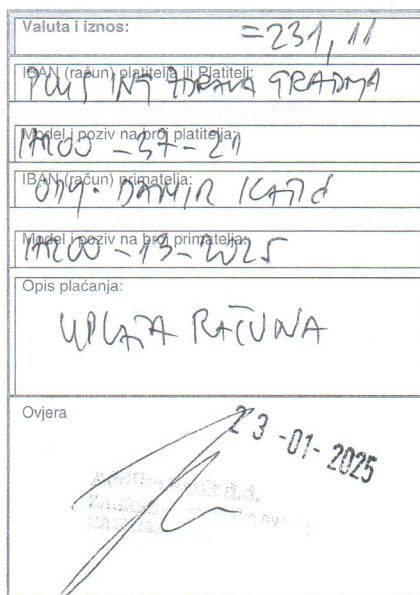 Valuta i iznos:
=231,11
IBAN (račun) platitelja ili Platitelj:
PLUS INT ZDRAVA GRADNJA
Model i poziv na broj platitelja:
HR00-37-21
IBAN (račun) primatelja:
DAMIR
Model i poziv na broj primatelja:
HR00-13-2025
Opis plaćanja:
UPLATA RAČUNA
Ovjera
23-01-2025
d.d.